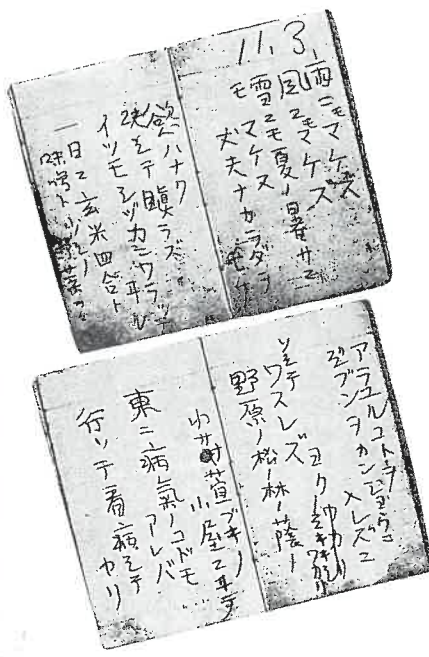 11. 3.
雨ニモマケズ
風ニモマケズ
雪ニモ夏ノ暑サニ
モ マケヌ
丈夫ナカラダヲ
モチ
慾ハナク
決シテ瞋ラズ
イツモシヅカニワラッテヰル
一日ニ玄米四合ト
味噌ト少シノ
アラユルコトヲ
ジブンヲカンジョウニ
入レズニ
ヨクミキキシワカリ
ソシテワスレズ
野原ノ松ノ林ノ蔭ノ
小サナ萱ブキノ
小屋ニヰテ
東ニ病氣ノコドモ
アレバ
行ッテ看病シテ
ヤリ